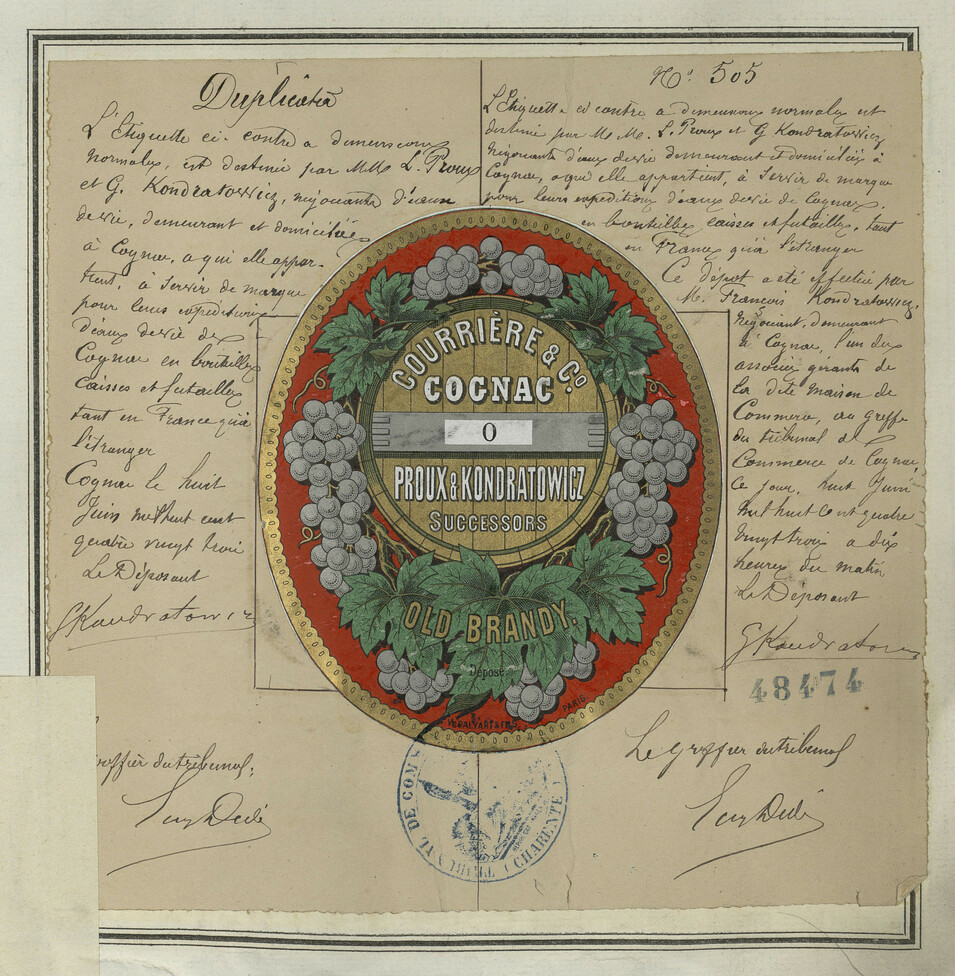 Duplicata
L'Etiquette ci-contre a dimensions
normales, est destinée par MM. L. Proux
et G. Kondratowicz, négociants d'eaux
de vie, demeurant et domiciliés
à Cognac, a qui elle appar-
tient, à servir de marque
pour leurs expéditions
d'eaux de vie de
Cognac en bouteilles
caisses et futailles
tant en France qu'à
l'étranger
Cognac le huit
Juin mil huit cent
quatre vingt trois
Le Déposant
GKondratowicz
greffier du tribunal.
No. 505
L'Etiquette ci contre a dimensions normales est
destinée par M.M. L. Proux et G Kondratowicz
négociants d'eaux de vie demeurant et domiciliés à
Cognac, a qui elle appartient, à servir de marque
pour leurs expéditions d'eaux de vie de Cognac
en bouteilles caisses et futailles, tant
en France qu'à l'étranger
Ce dépot a été effectué par
M. François Kondratowicz,
négociant, demeurant
à Cognac, l'un des
associés gérants de
la dite maison de
Commerce, au greffe
du tribunal de
Commerce de Cognac,
ce jour, huit Juin
mil huit cent quatre
vingt trois a dix
heures du matin
Le Déposant
GKondratowicz
48474
Le greffier du tribunal
COURRIÈRE & Co.
COGNAC
O
PROUX & KONDRATOWICZ
SUCCESSORS
OLD BRANDY.
Déposé
PARIS
DE COM
CHARENTE